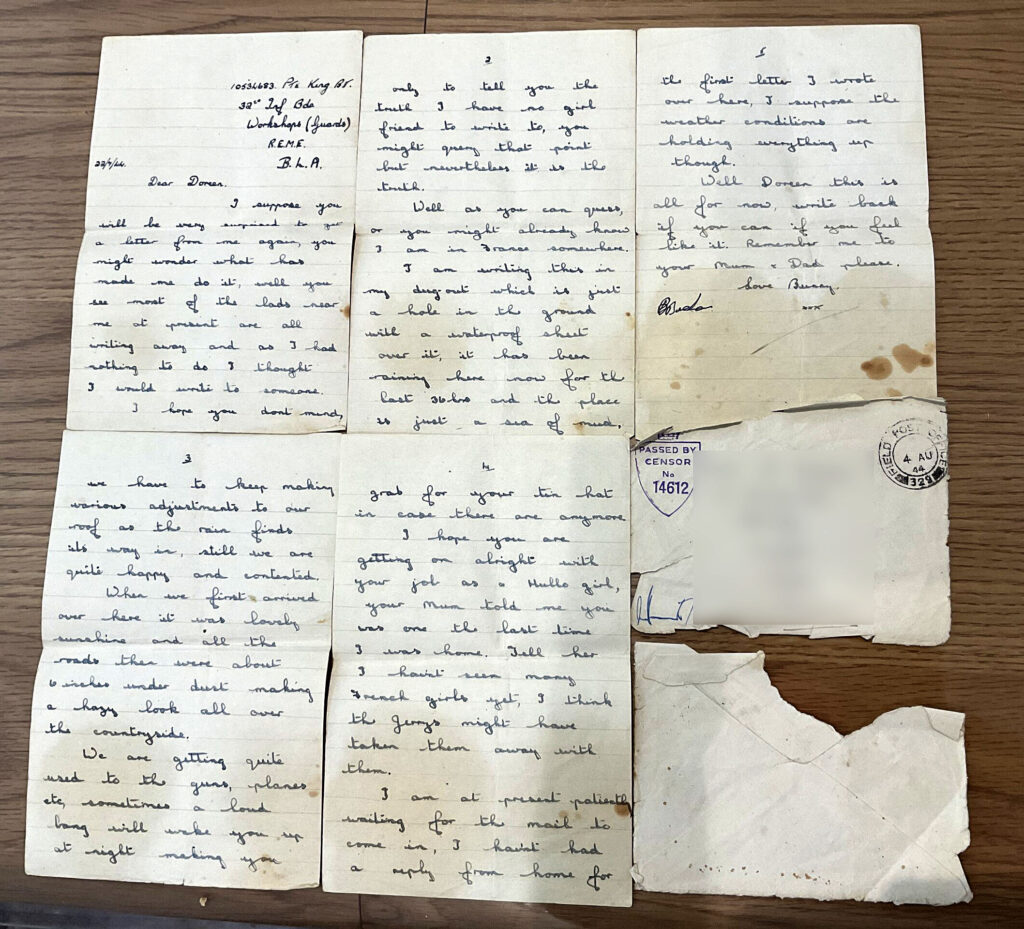 10534683. Pte King BF.
32nd Inf Bde
Workshops (Guards)
R.E.M.E.
B.L.A.
22/7/44.
Dear Doreen.
I suppose you
will be very surprised to get
a letter from me again, you
might wonder what has
made me do it, well you
see most of the lads near
me at present are all
writing away and as I had
nothing to do I thought
I would write to someone.
I hope you dont mind,
2
only to tell you the
truth I have no girl
friend to write to, you
might query that point
but nevertheless it is the
truth.
Well as you can guess,
or you might already know
I am in France somewhere.
I am writing this in
my dugout which is just
a hole in the ground
with a waterproof sheet
over it, it has been
raining here now for the
last 36 hrs and the place
is just a sea of mud,
3
we have to keep making
various adjustments to our
roof as the rain finds
its way in, still we are
quite happy and contented.
When we first arrived
over here it was lovely
sunshine and all the
roads then were about
6 inches under dust making
a hazy look all over
the countryside.
We are getting quite
used to the guns, planes
etc, sometimes a loud
bang will wake you up
at night making you
4
grab for your tin hat
in case there are anymore
I hope you are
getting on alright with
your job as a Hullo girl,
your Mum told me you
was one the last time
I was home. Tell her
I havint seen many
French girls yet, I think
the Jerrys might have
taken them away with
them.
I am at present patiently
waiting for the mail to
come in, I havint had
a reply from home for
5
the first letter I wrote
over here, I suppose the
weather conditions are
holding everything up
though.
Well Doreen this is
all for now, write back
if you can if you feel
like it. Remember me to
your Mum & Dad please.
Love Bussy.
xxx
PASSED BY
CENSOR
No
14612
FIELD POST OFFICE
4 AU
44
329